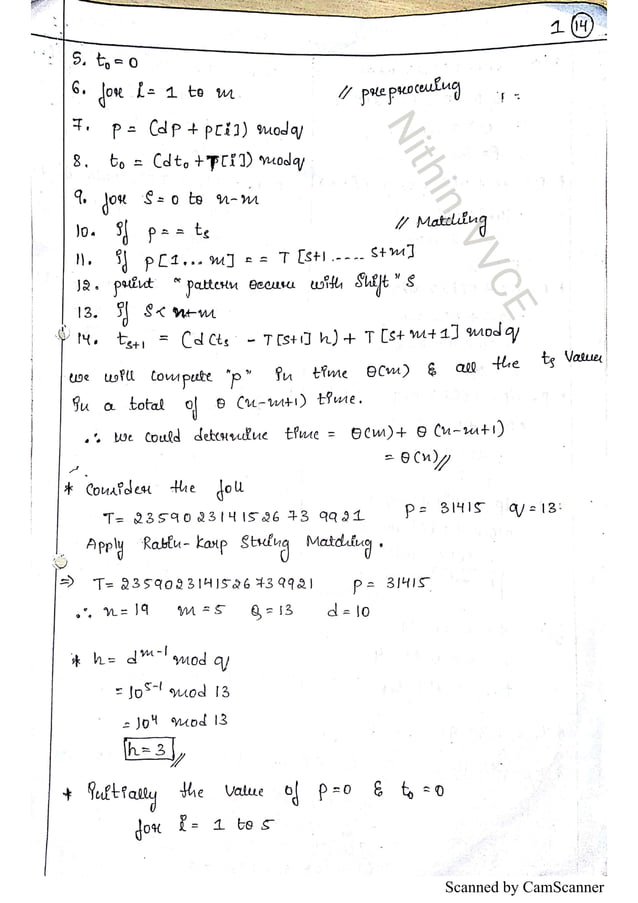 1 (14)
5. t₀ = 0
6. for i = 1 to m // preprocessing
7. p = (dp + p[i]) mod q
8. t₀ = (dt₀ + T[i]) mod q
9. for S = 0 to n-m
10. If p == ts // Matching
11. If p[1...m] == T [s+1..... s+m]
12. print "pattern occurs with Shift" S
13. If S < n-m
14. ts+1 = (d(ts - T[s+1] h) + T[s+m+1] mod q
we will compute "p" in time θ(m) & all the ts values
in a total of θ (n-m+1) time.
∴ we could determine time = θ(m) + θ (n-m+1)
= θ(n)//
* Consider the foll
T = 2359023141526739921 P = 31415 q = 13.
Apply Rabin-Karp String Matching.
⇒ T = 2359023141526739921 P = 31415
∴ n = 19 m = 5 Q = 13 d = 10
* h = d^m-1 mod q
= 10^5-1 mod 13
= 10^4 mod 13
h = 3 //
* Initially the value of p = 0 & t₀ = 0
for i = 1 to 5
Nithin VVCE
Scanned by CamScanner